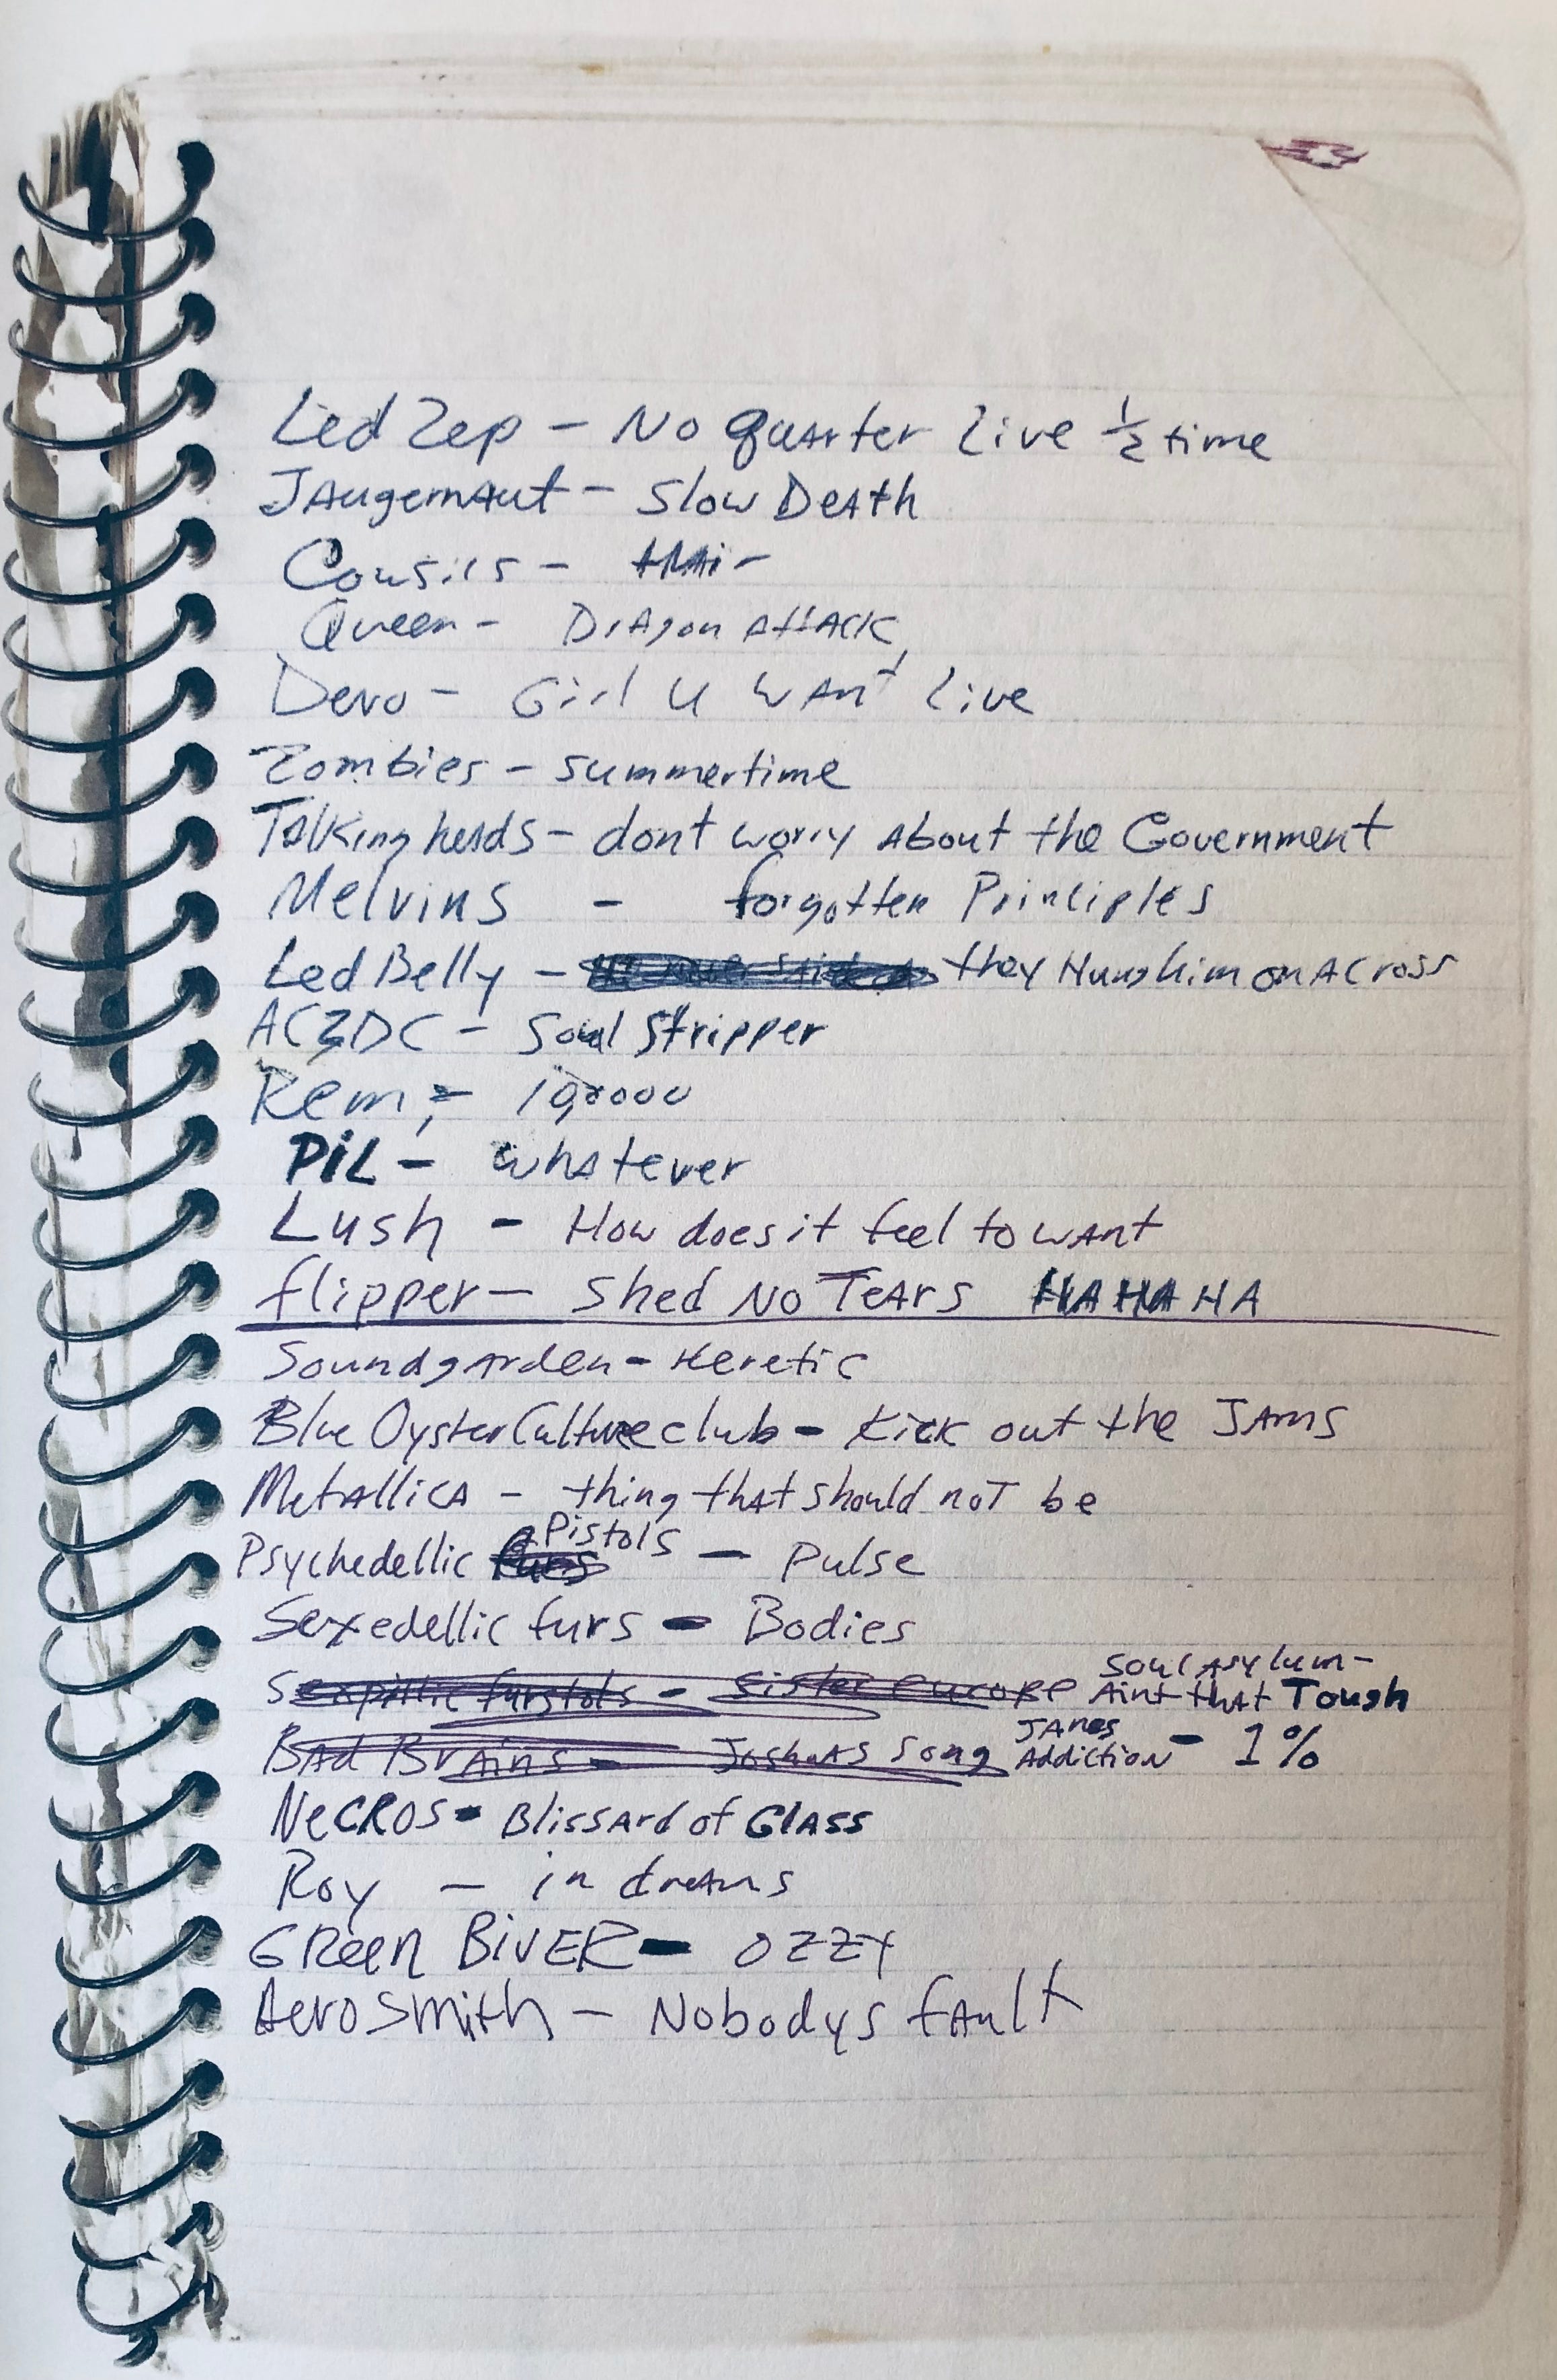 Led Zep - No quarter Live ½ time
JAugernAut - Slow DeAth
Cowsils - HAir
Queen - DrAgon AttACK
Devo - Girl U WAnt Live
Zombies - summertime
Talking heads - dont worry About the Government
Melvins - forgotten Principles
Led Belly - they Hung him on A Cross
AC⚡DC - Soul Stripper
Rem, - 10,000
PiL - whatever
Lush - How does it feel to wAnt
flipper - Shed No TeArs HAHAHA
SoundgArden - Heretic
Blue Oyster Culture club - Kick out the JAms
MetAllicA - thing that should not be
Psychedellic furs Pistols - Pulse
Sexedellic furs - Bodies
Sexpillic furstols - Sister europe Soul Asylum - Aint thAt Tough
BAd BrAins - JoshuAs Song JAnes Addiction - 1%
NeCROS - BlissArd of GlASS
Roy - in dreAms
GReen BivER - OZZY
AeroSmith - Nobodys fAult